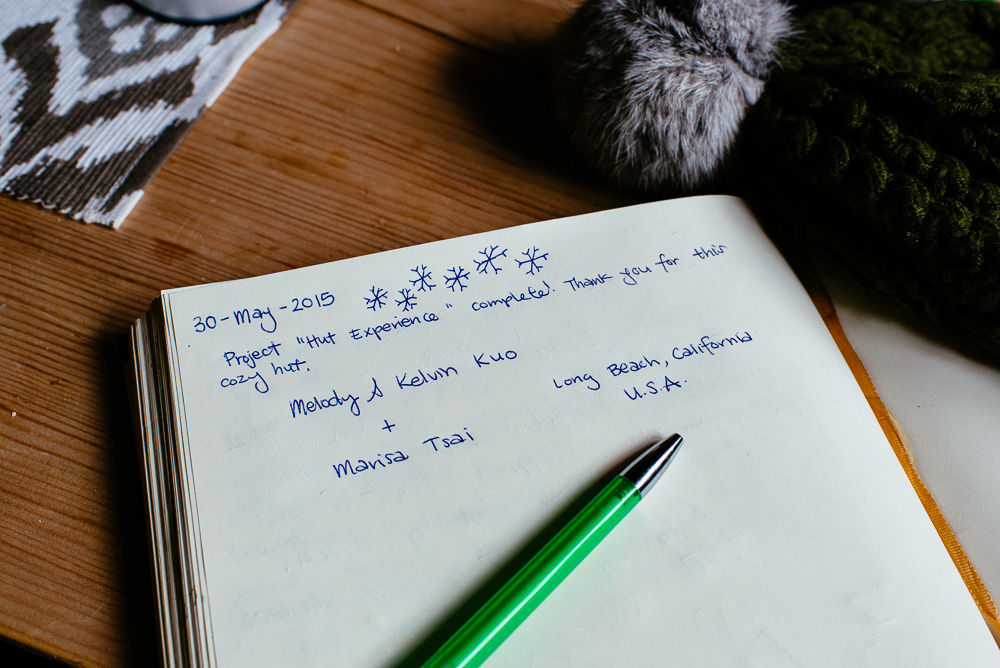 30-May-2015
Project "Hut Experience" complete! Thank you for this
cozy hut.
Melody & Kelvin Kuo
+
Marisa Tsai
Long Beach, California
U.S.A.